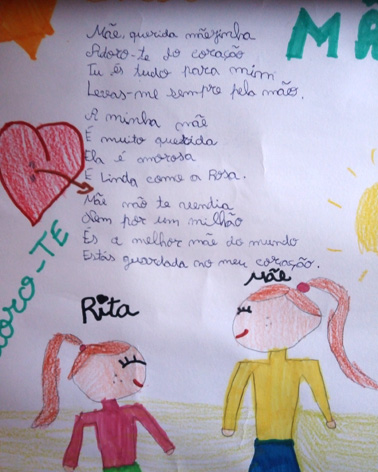 MÃ
Mãe, querida mãezinha
Adoro-te do coração
Tu és tudo para mim
Levas-me sempre pela mão.
A minha mãe
É muito querida
Ela é amorosa
E linda como a Rosa.
Mãe não te vendia
Nem por um milhão
És a melhor mãe do mundo
Estás guardada no meu coração.
oro-TE
Rita
Mãe